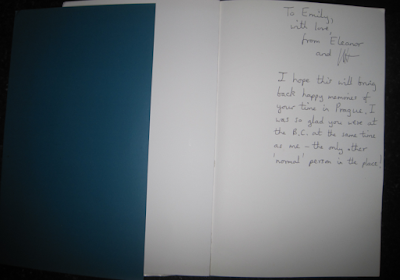 To Emily,
with love,
from Eleanor
and
I hope this will bring
back happy memories of
your time in Prague. I
was so glad you were at
the B.C. at the same time
as me – the only other
'normal' person in the place!